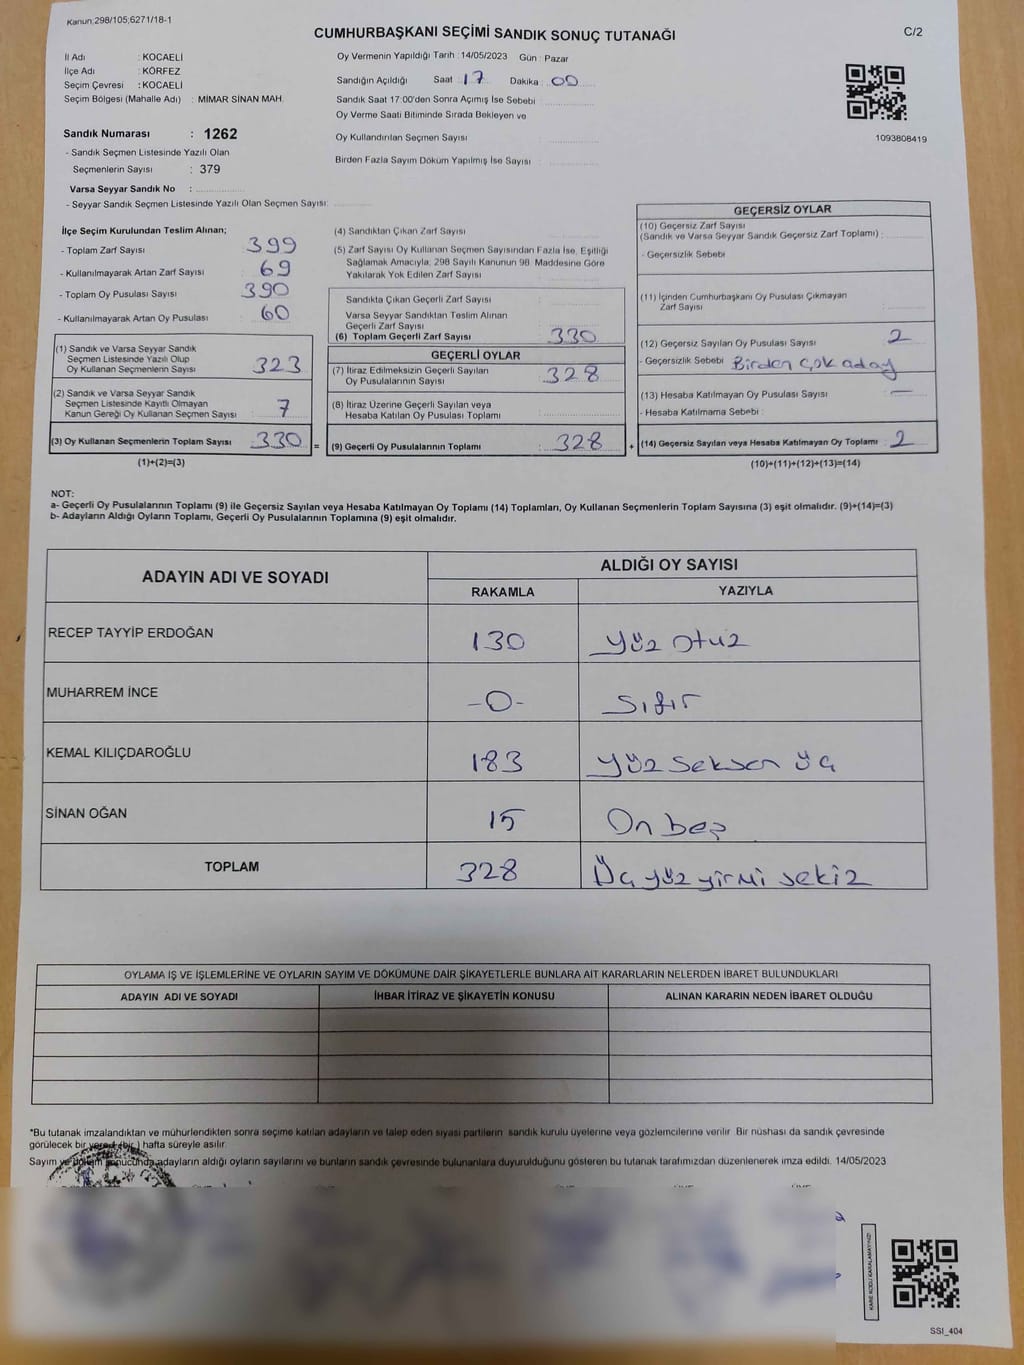 Kanun:298/105;6271/18-1
CUMHURBAŞKANI SEÇİMİ SANDIK SONUÇ TUTANAĞI
C/2
İl Adı : KOCAELİ
İlçe Adı : KÖRFEZ
Seçim Çevresi : KOCAELİ
Seçim Bölgesi (Mahalle Adı) : MİMAR SİNAN MAH.
Oy Vermenin Yapıldığı Tarih : 14/05/2023 Gün : Pazar
Sandığın Açıldığı Saat : 17 Dakika : 00
Sandık Saat 17:00'den Sonra Açımış İse Sebebi :
Oy Verme Saati Bitiminde Sırada Bekleyen ve
Oy Kullandırılan Seçmen Sayısı :
Birden Fazla Sayım Döküm Yapılmış İse Sayısı :
1093808419
Sandık Numarası : 1262
- Sandık Seçmen Listesinde Yazılı Olan
Seçmenlerin Sayısı : 379
Varsa Seyyar Sandık No :
- Seyyar Sandık Seçmen Listesinde Yazılı Olan Seçmen Sayısı:
İlçe Seçim Kurulundan Teslim Alınan;
- Toplam Zarf Sayısı : 399
- Kullanılmayarak Artan Zarf Sayısı : 69
- Toplam Oy Pusulası Sayısı : 390
- Kullanılmayarak Artan Oy Pusulası : 60
(1) Sandık ve Varsa Seyyar Sandık
Seçmen Listesinde Yazılı Olup
Oy Kullanan Seçmenlerin Sayısı : 323
(2) Sandık ve Varsa Seyyar Sandık
Seçmen Listesinde Kayıtlı Olmayan
Kanun Gereği Oy Kullanan Seçmen Sayısı : 7
(3) Oy Kullanan Seçmenlerin Toplam Sayısı : 330 =
(1)+(2)=(3)
(4) Sandıktan Çıkan Zarf Sayısı :
(5) Zarf Sayısı Oy Kullanan Seçmen Sayısından Fazla İse, Eşitliği
Sağlamak Amacıyla, 298 Sayılı Kanunun 98. Maddesine Göre
Yakılarak Yok Edilen Zarf Sayısı :
Sandıkta Çıkan Geçerli Zarf Sayısı :
Varsa Seyyar Sandıktan Teslim Alınan
Geçerli Zarf Sayısı :
(6) Toplam Geçerli Zarf Sayısı : 330
GEÇERLİ OYLAR
(7) İtiraz Edilmeksizin Geçerli Sayılan
Oy Pusulalarının Sayısı : 328
(8) İtiraz Üzerine Geçerli Sayılan veya
Hesaba Katılan Oy Pusulası Toplamı :
(9) Geçerli Oy Pusulalarının Toplamı : 328 +
GEÇERSİZ OYLAR
(10) Geçersiz Zarf Sayısı
(Sandık ve Varsa Seyyar Sandık Geçersiz Zarf Toplamı) :
- Geçersizlik Sebebi :
(11) İçinden Cumhurbaşkanı Oy Pusulası Çıkmayan
Zarf Sayısı :
(12) Geçersiz Sayılan Oy Pusulası Sayısı : 2
- Geçersizlik Sebebi : Birden çok aday
(13) Hesaba Katılmayan Oy Pusulası Sayısı : —
- Hesaba Katılmama Sebebi :
(14) Geçersiz Sayılan veya Hesaba Katılmayan Oy Toplamı : 2
(10)+(11)+(12)+(13)=(14)
NOT:
a- Geçerli Oy Pusulalarının Toplamı (9) ile Geçersiz Sayılan veya Hesaba Katılmayan Oy Toplamı (14) Toplamları, Oy Kullanan Seçmenlerin Toplam Sayısına (3) eşit olmalıdır. (9)+(14)=(3)
b- Adayların Aldığı Oyların Toplamı, Geçerli Oy Pusulalarının Toplamına (9) eşit olmalıdır.
ADAYIN ADI VE SOYADI
ALDIĞI OY SAYISI
RAKAMLA YAZIYLA
RECEP TAYYİP ERDOĞAN 130 Yüz otuz
MUHARREM İNCE -0- Sıfır
KEMAL KILIÇDAROĞLU 183 Yüz seksen üç
SİNAN OĞAN 15 On beş
TOPLAM 328 Üç yüz yirmi sekiz
OYLAMA İŞ VE İŞLEMLERİNE VE OYLARIN SAYIM VE DÖKÜMÜNE DAİR ŞİKAYETLERLE BUNLARA AİT KARARLARIN NELERDEN İBARET BULUNDUKLARI
ADAYIN ADI VE SOYADI İHBAR İTİRAZ VE ŞİKAYETİN KONUSU ALINAN KARARIN NEDEN İBARET OLDUĞU
*Bu tutanak imzalandıktan ve mühürlendikten sonra seçime katılan adayların ve talep eden siyasi partilerin sandık kurulu üyelerine veya gözlemcilerine verilir. Bir nüshası da sandık çevresinde
görülecek bir yere (bir) hafta süreyle asılır.
Sayım ve döküm sonucunda adayların aldığı oyların sayılarını ve bunların sandık çevresinde bulunanlara duyurulduğunu gösteren bu tutanak tarafımızdan düzenlenerek imza edildi. 14/05/2023
KARE KODU KARALAMAYINIZ!
SSI_404